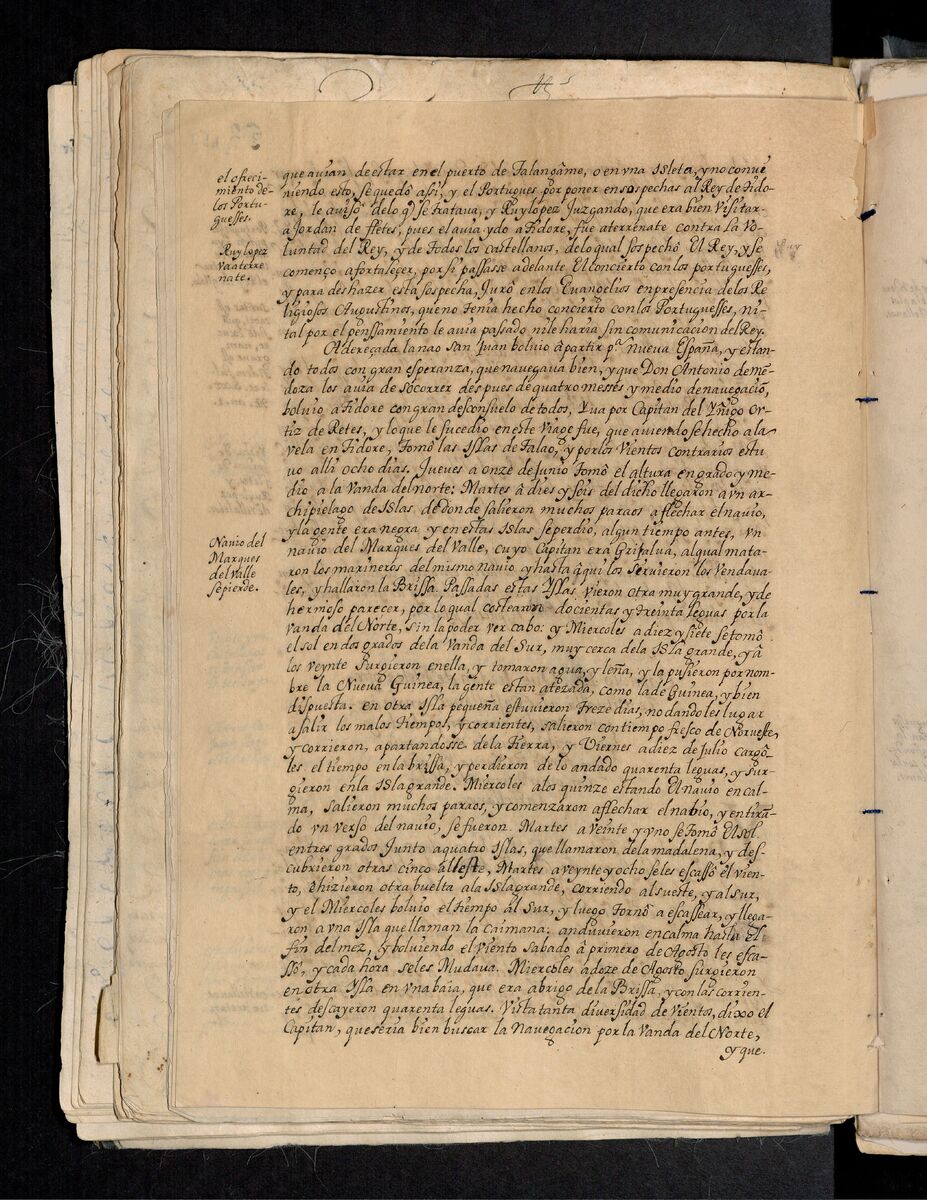 el ofreci-
miento de-
los Portu-
guesses.
Ruy lopez
va a terre
nate.
Navio del
Marques
del valle
se pierde.
que avian de estar en el puerto de Talangáme, o en vna Isleta, y no convi
niendo esto, se quedô assi, y el Portugues por poner en sospechas al Rey de Tido-
re, le avisô de lo q̃ se tratava, y Ruy lopez Juzgando, que era bien Visitar
a Jordan de fletes, pues el avia ydo a Tidore, fue a terrenate contra La Vo-
luntad del Rey, y de Todos los castellanos, de lo qual sospechô El Rey, y se
començo a fortaleçer, por si passasse adelante El concierto con los portuguesses,
y para deshazer esta sospecha, Jurô en los Evangelios en presencia de los Re
ligiosos Augustinos, que no Tenia hecho concierto con los Portuguesses, ni-
tal por el penssamiento le avia passado ni le haria sin comunicacion del Rey.
Adereçada la nao San Juan bolvio â partir p.ª Nueva España, y estan-
do todos con gran esperanza, que navegava bien, y que Don Antonio de mẽ-
doza los avia de socorrer, despues de quatro messes y medio de navegaciõ,
bolvio a Tidore con gran desconsuelo de todos, Yva por Capitan del Yñigo or-
tiz de Retes, y lo que le sucedio en este viage fue, que aviendose hecho a la
vela en Tidore, Tomô las Islas de Talao, y por los Vientos contrarios estu
vo alli ocho dias. Jueves a onze de Junio Tomô el altura en grado y me-
dio a la Vanda del norte: Martes â dies y seis del dicho llegaron a vn ar-
chipielago de Islas de donde salieron muchos paraos a flechar el navio,
y la gente era negra y en estas Islas se perdio, algun tiempo antes, vn
navio del Marques del Valle, cuyo Capitan era Grifalua, al qual mata-
ron los marineros del mismo navio y hasta âqui los servieron los Vendava-
les, y hallaron la Brissa. Passadas estas Yslas vieron otra muy grande, y de
hermoso parecer, por lo qual costearon docientas y treinta leguas por la
Vanda del Norte, sin la poder ver cabo: y Miercoles a diez y siete se tomô
el sol en dos grados de la Vanda del Sur, muy cerca de la Isla grande, y â
los veynte surgieron en ella, y tomaron agua, y leña, y la pusieron por nom-
bre la Nueva Guinea, la gente es tan atezada, como la de Guinea, y bien
dispuesta. en otra Isla pequeña estuvieron Treze dias, no dandoles lugar
a salir los malos tiempos, y corrientes, salieron con tiempo fresco de Norueste,
y corrieron, apartandosse de la Tierra, y Viernes a diez de Julio cargô-
les el tiempo en la brissa, y perdieron de lo andado quarenta leguas, y sur-
gieron en la Isla grande. Miercoles a los quinze estando El navio en cal-
ma, salieron muchos paraos, y comenzaron a flechar el nabio, y en tirã-
do vn verso del navio, se fueron. Martes a veinte y vno se Tomô El sol
en tres grados Junto a quatro Islas, que llamaron de la madalena, y des-
cubrieron otras cinco al leste, Martes a veynte y ocho se les escassô el vien-
to, e hizieron otra buelta a la Isla grande, corriendo al sueste, y al sur,
y el Miercoles bolvio el tiempo al Sur, y luego Tornô a escassear, y llega-
ron a vna Isla que llaman la caimana: anduvieron en calma hasta el
fin del mez, y bolviendo el viento Sabado â primero de Agosto les esca-
ssô, y cada hora se les Mudava. Miercoles a doze de Agosto surgieron
en otra Isla en vna baia, que era abrigo de la Brissa, y con las corrien-
tes descayeron quarenta leguas. Vista tanta diversidad de vientos, dixo el
Capitan, que seria bien buscar la Navegacion por la Vanda del Norte,
y que.